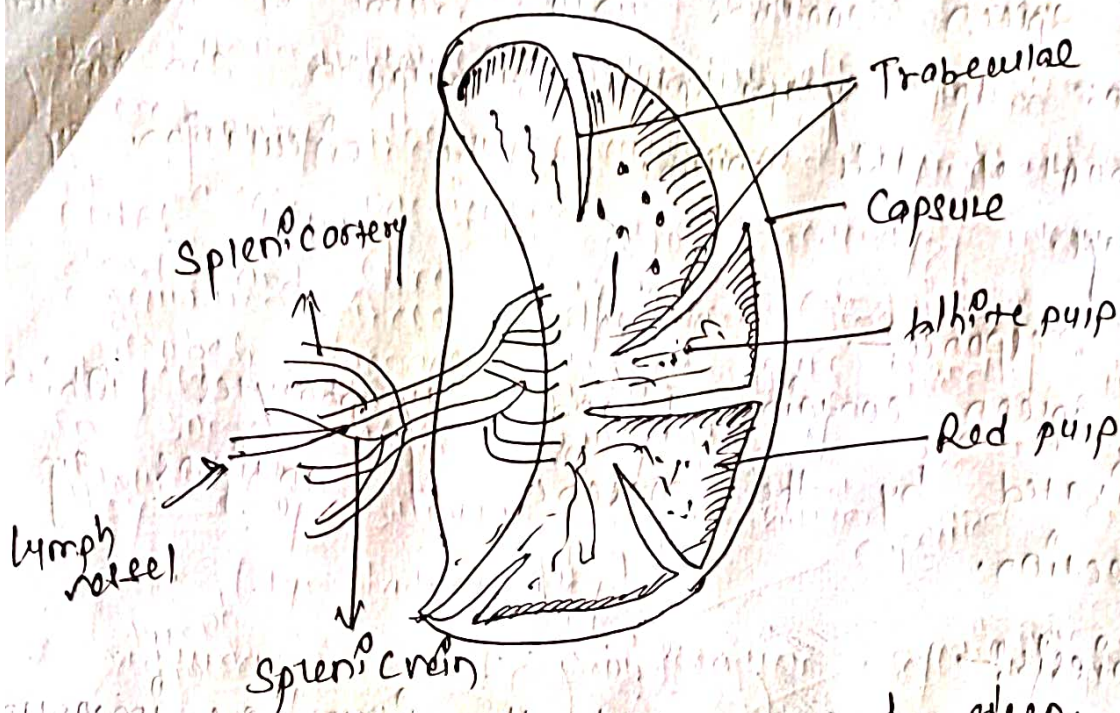 Trabeculae
Capsule
Splenic artery
White pulp
Red pulp
Lymph
vessel
Splenic vein